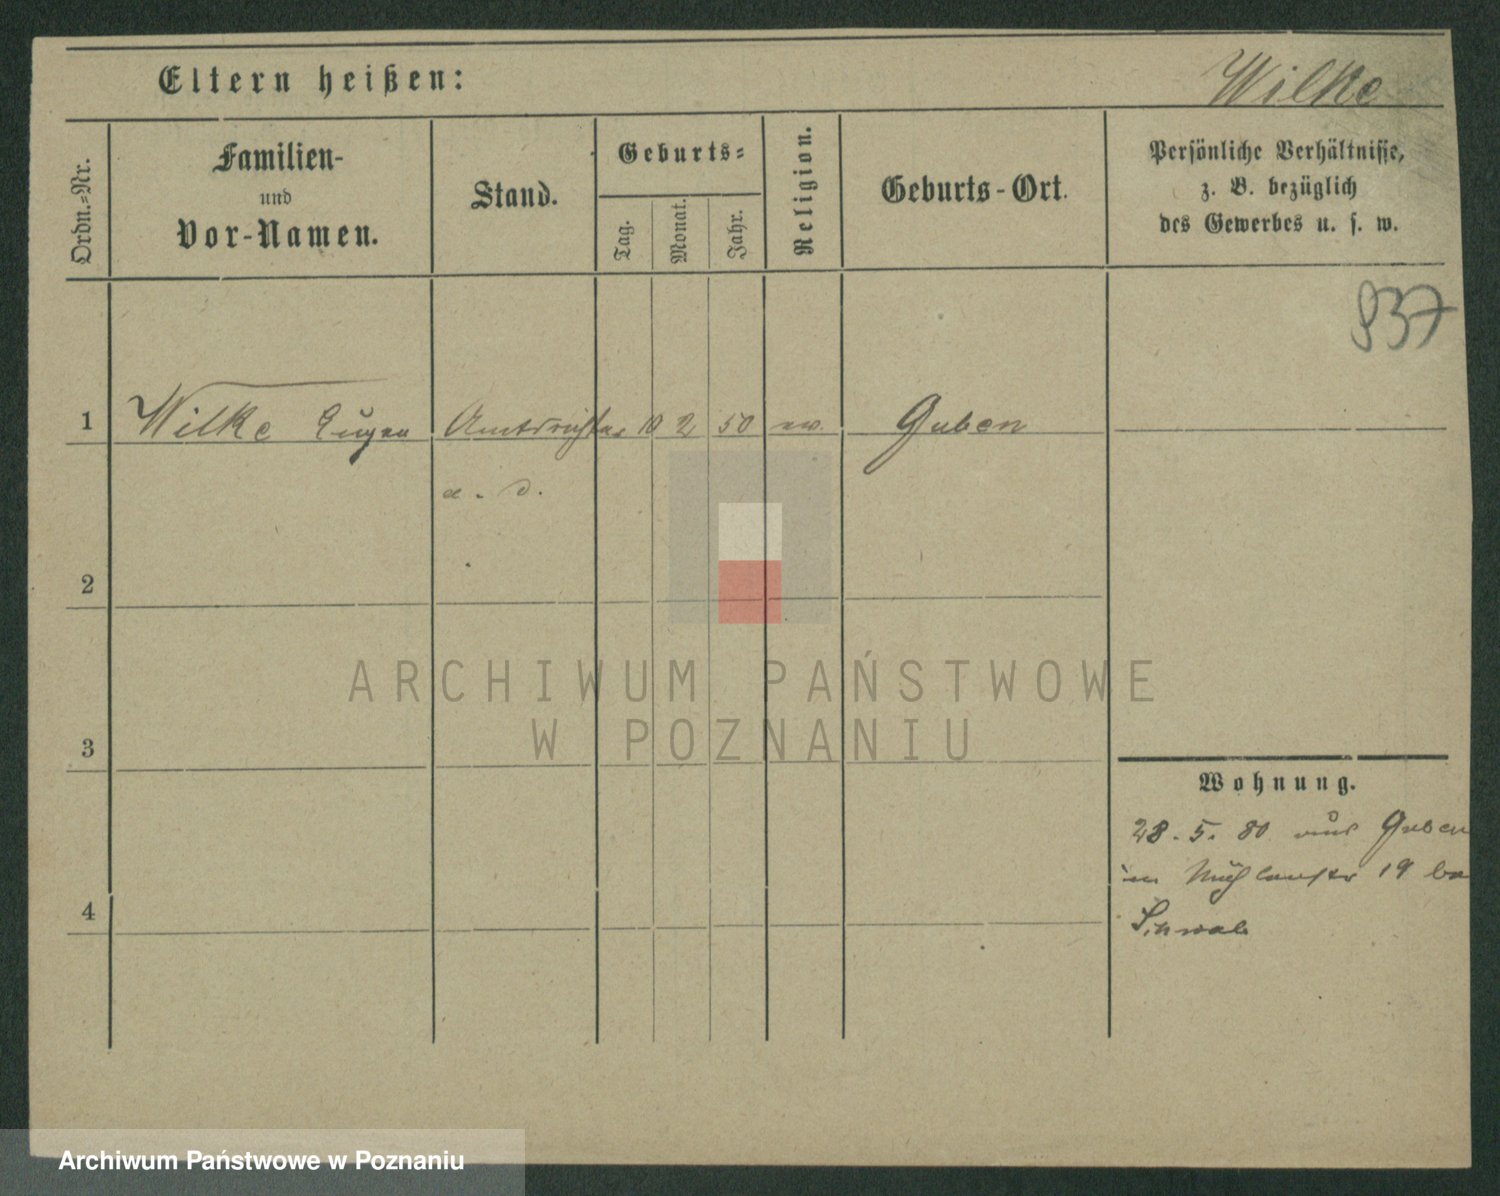 Eltern heißen:
Wilke
Ordn.-Nr.
Familien-
und
Vor-Namen.
Stand.
Geburts-
Tag.
Monat.
Jahr.
Religion.
Geburts-Ort.
Persönliche Verhältnisse,
z. B. bezüglich
des Gewerbes u. s. w.
937
1 Wilke Eugen Amtsrichter 10 2 50 ev. Guben
a. D.
2
3
4
Wohnung.
28. 5. 80 aus Guben
in 19
Schwab
ARCHIWUM PAŃSTWOWE
W POZNANIU
Archiwum Państwowe w Poznaniu